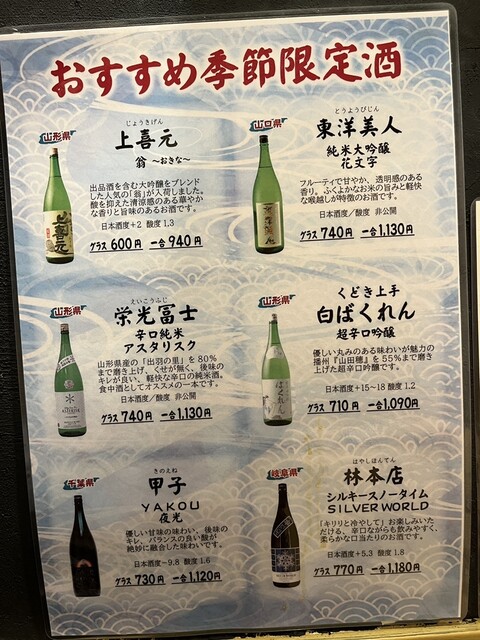 おすすめ季節限定酒
山形県
じょうきげん
上喜元
翁 〜おきな〜
出品酒を含む大吟醸をブレンド
した人気の「翁」が入荷しました。
酸を抑えた清涼感のある華やか
な香りと旨味のあるお酒です。
日本酒度+2 酸度 1.3
グラス 600円 一合 940円
山口県
とうようびじん
東洋美人
純米大吟醸
花文字
フルーティで甘やか、透明感のある
香り。ふくよかなお米の旨みと軽快
な喉越しが特徴のお酒です。
日本酒度/酸度 非公開
グラス 740円 一合 1,130円
山形県
えいこうふじ
栄光冨士
辛口純米
アスタリスク
山形県産の「出羽の里」を80%
まで磨き上げ、くせが無く、後味の
キレが良い、軽快な辛口の純米酒。
食中酒としてオススメの一本です。
日本酒度/酸度 非公開
グラス 740円 一合 1,130円
山形県
くどき上手
白ばくれん
超辛口吟醸
優しい丸みのある味わいが魅力の
播州『山田穂』を55%まで磨き
上げた超辛口吟醸です。
日本酒度+15〜18 酸度 1.2
グラス 710円 一合 1,090円
千葉県
きのえね
甲子
YAKOU
夜光
優しい甘味の味わい、後味の
キレ、バランスの良い酸が
絶妙に融合した味わいです。
日本酒度−9.8 酸度 1.6
グラス 730円 一合 1,120円
岐阜県
はやしほんてん
林本店
シルキースノータイム
SILVER WORLD
「キリリと冷やして」お楽しみいた
だける、辛口ながらも飲みやすく、
柔らかな口当たりのお酒です。
日本酒度+5.3 酸度 1.8
グラス 770円 一合 1,180円